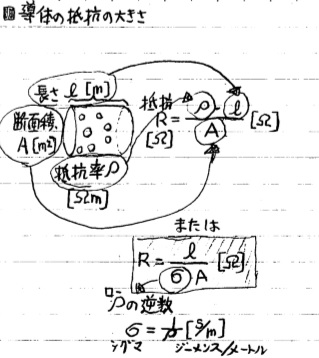 導体の抵抗の大きさ
長さ l [m]
断面積
A [m²]
抵抗率ρ
[Ωm]
抵抗
R = ρ・l / A [Ω]
[Ω]
または
R = l / σA [Ω]
ロー
ρの逆数
σ = 1/ρ [S/m]
シグマ ジーメンス/メートル